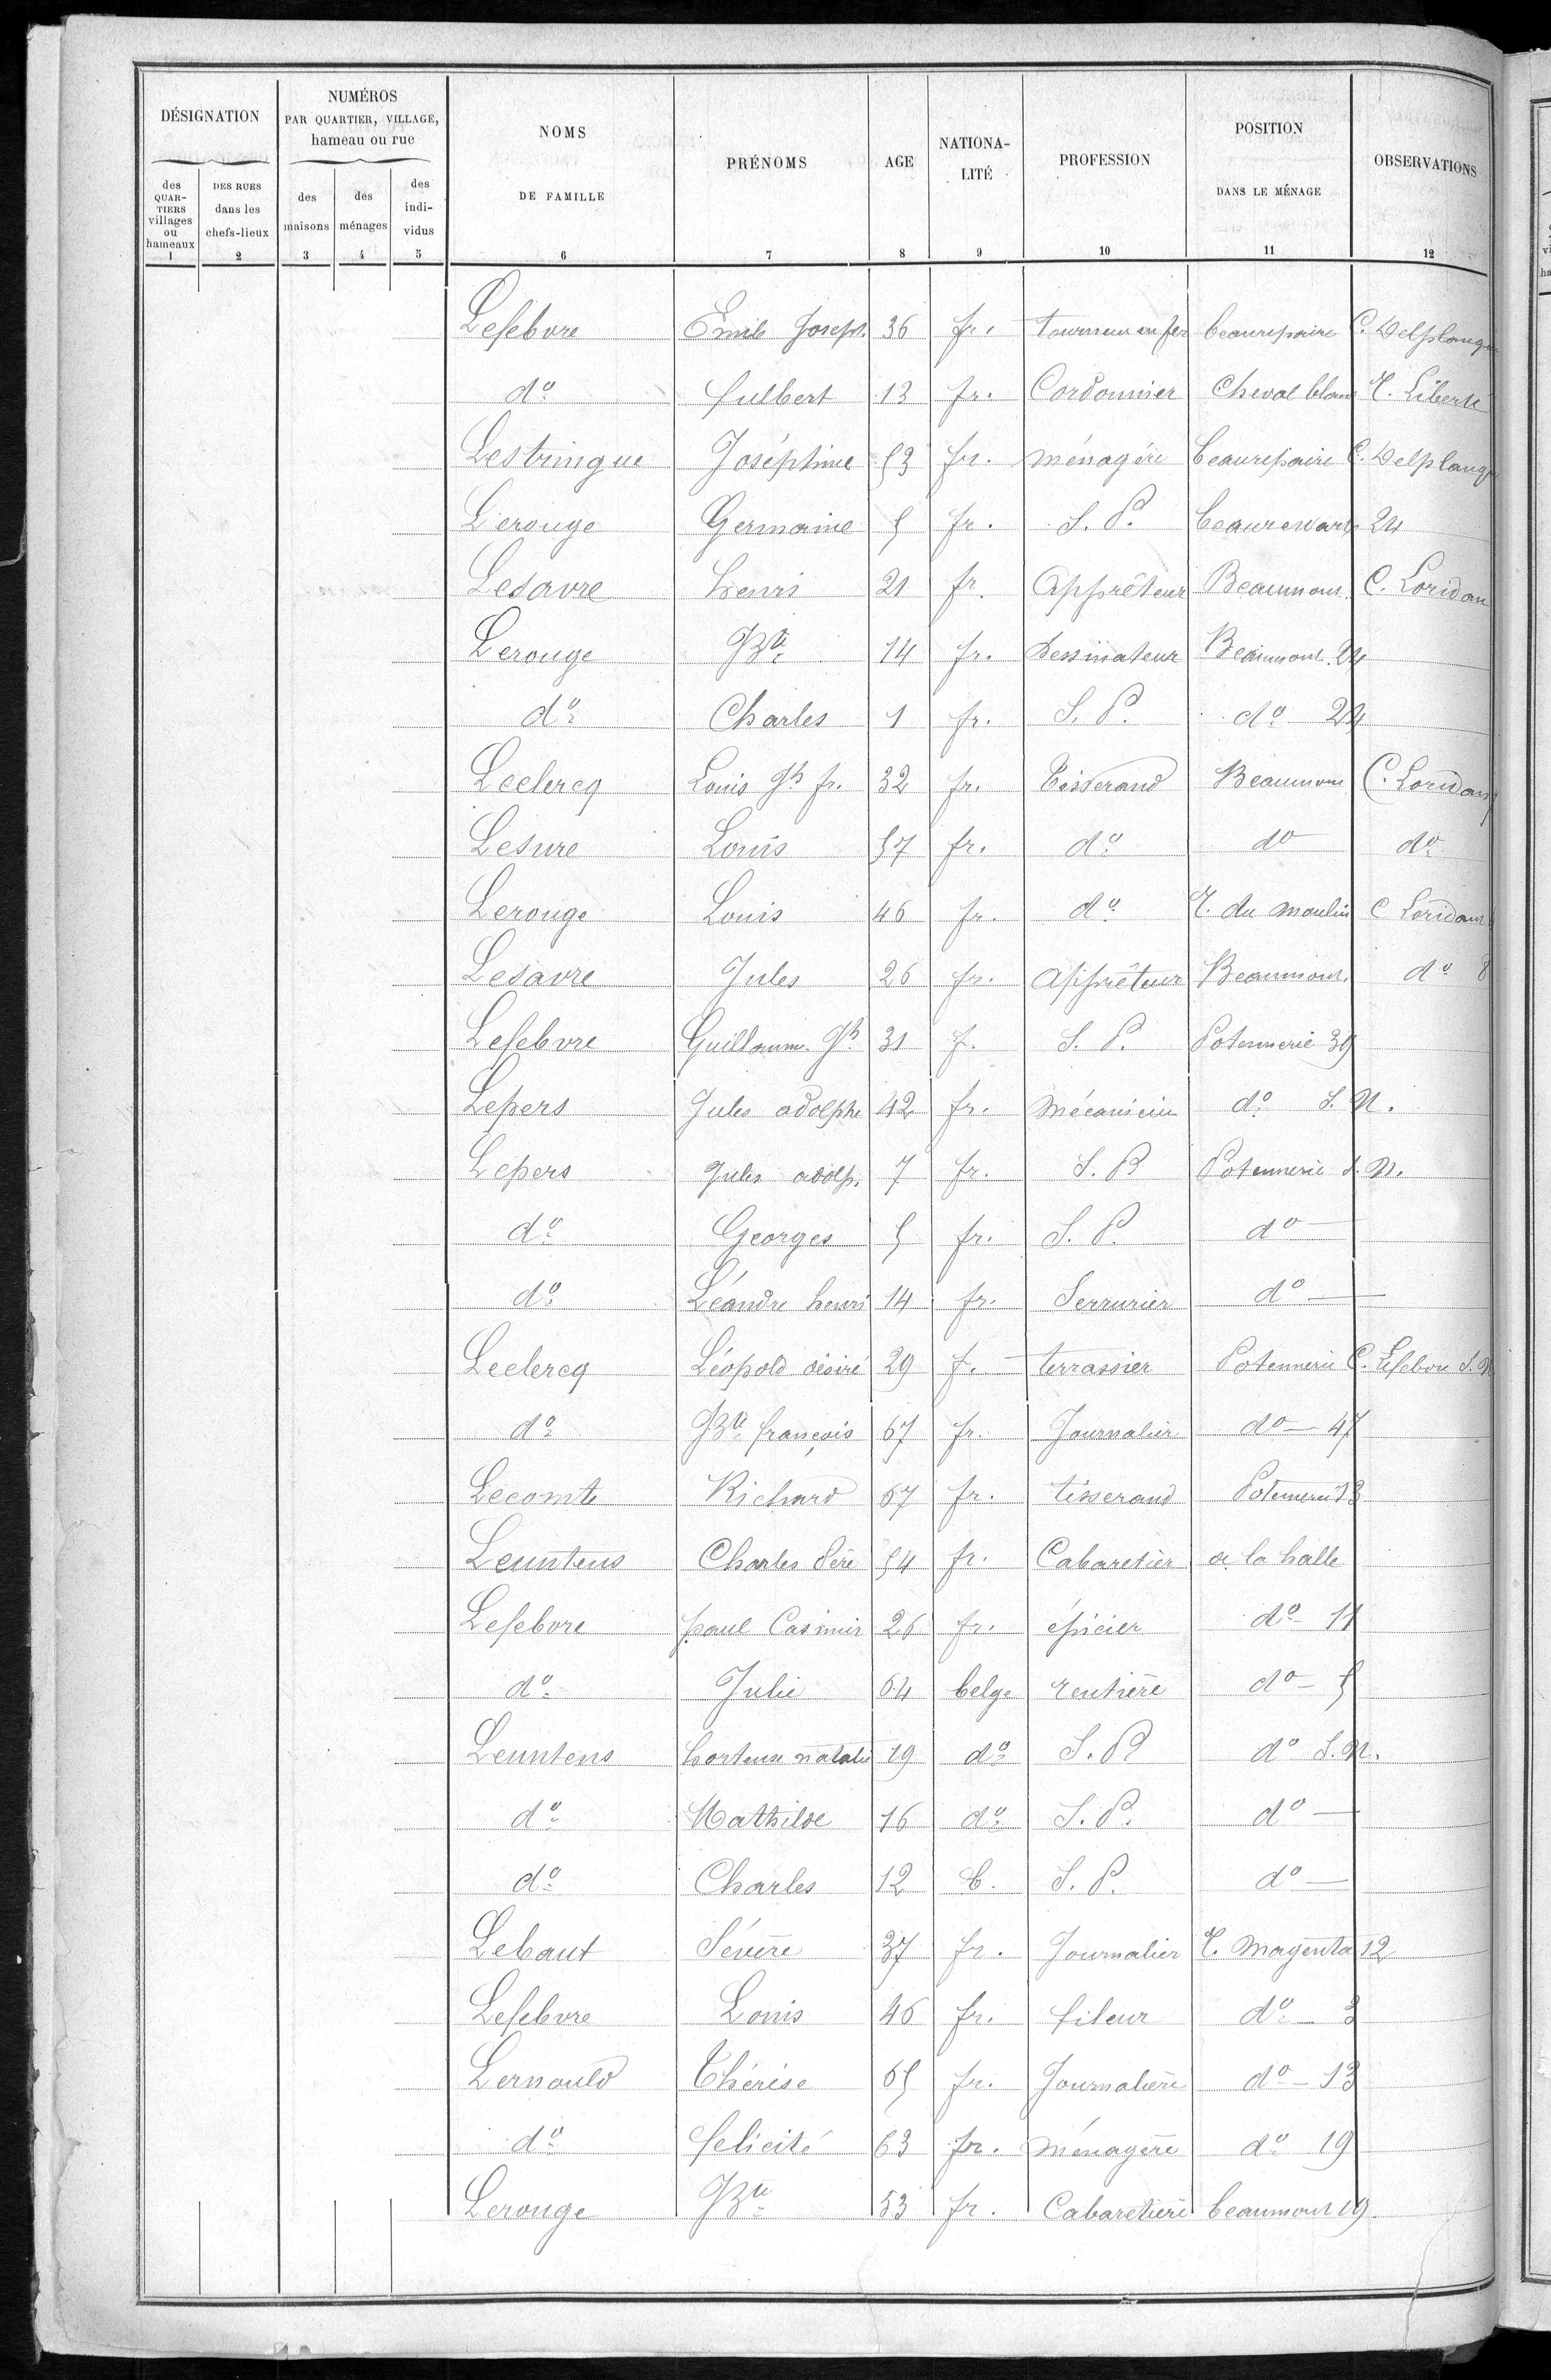 DÉSIGNATION NUMÉROS PAR QUARTIER, VILLAGE, hameau ou rue NOMS DE FAMILLE PRÉNOMS AGE NATIONA-LITÉ PROFESSION POSITION DANS LE MÉNAGE OBSERVATIONS
des QUAR-TIERS villages ou hameaux DES RUES dans les chefs-lieux des maisons des ménages des indi-vidus
1 2 3 4 5 6 7 8 9 10 11 12
Lefebvre Emile Joseph. 36 fr. tourneur en fer beaurepaire C. Delplanque
do fulbert 13 fr. Cordonnier Cheval blanc r. Liberté
Lestringue Joséphine 53 fr. ménagère beaurepaire C. Delplanque
Lerouge Germaine 5 fr. S. P. beaurewart 24
Lesavre henri 21 fr. Apprêteur Beaumont. C. Loridan
Lerouge JBte 14 fr. Dessinateur Beaumont. 24
do Charles 1 fr. S. P. do 24
Leclercq Louis Jh fr. 32 fr. Tisserand Beaumont C. Loridan
Lesure Louis 57 fr. do do do
Lerouge Louis 46 fr. do r. du moulin C Loridan
Lesavre Jules 26 fr. apprêteur Beaumont. do 8
Lefebvre Guillaum. Jh 31 f. S. P. Potennerie 39
Lepers Jules adolphe 42 fr. mécanicien do S. N.
Lepers Jules adolp. 7 fr. S. P Potennerie S. N.
do Georges 5 fr. S. P. do
do Léandre henri 14 fr. Serrurier do
Leclercq Léopold désiré 29 f. terrassier Potennerie C. Lefebvre S. N
do JBte françois 67 fr. Journalier do 47
Lecomte Richard 67 fr. tisserand Potennerie 13
Leuntens Charles Père 54 fr. Cabaretier a la halle
Lefebvre paul Casimir 26 fr. épicier do 11
do Julie 64 belge rentière do 5
Leuntens hortense natalie 19 do S. P do S. N.
do Mathilde 16 do S. P. do
do Charles 12 b. S. P. do
Lebaut Sévère 37 fr. Journalier r. Magenta 12
Lefebvre Louis 46 fr. fileur do 3
Lernould Thérèse 65 fr. Journalière do 13
do felicité 63 fr. ménagère do 19
Lerouge JBte 53 fr. Cabaretière beaumont 19